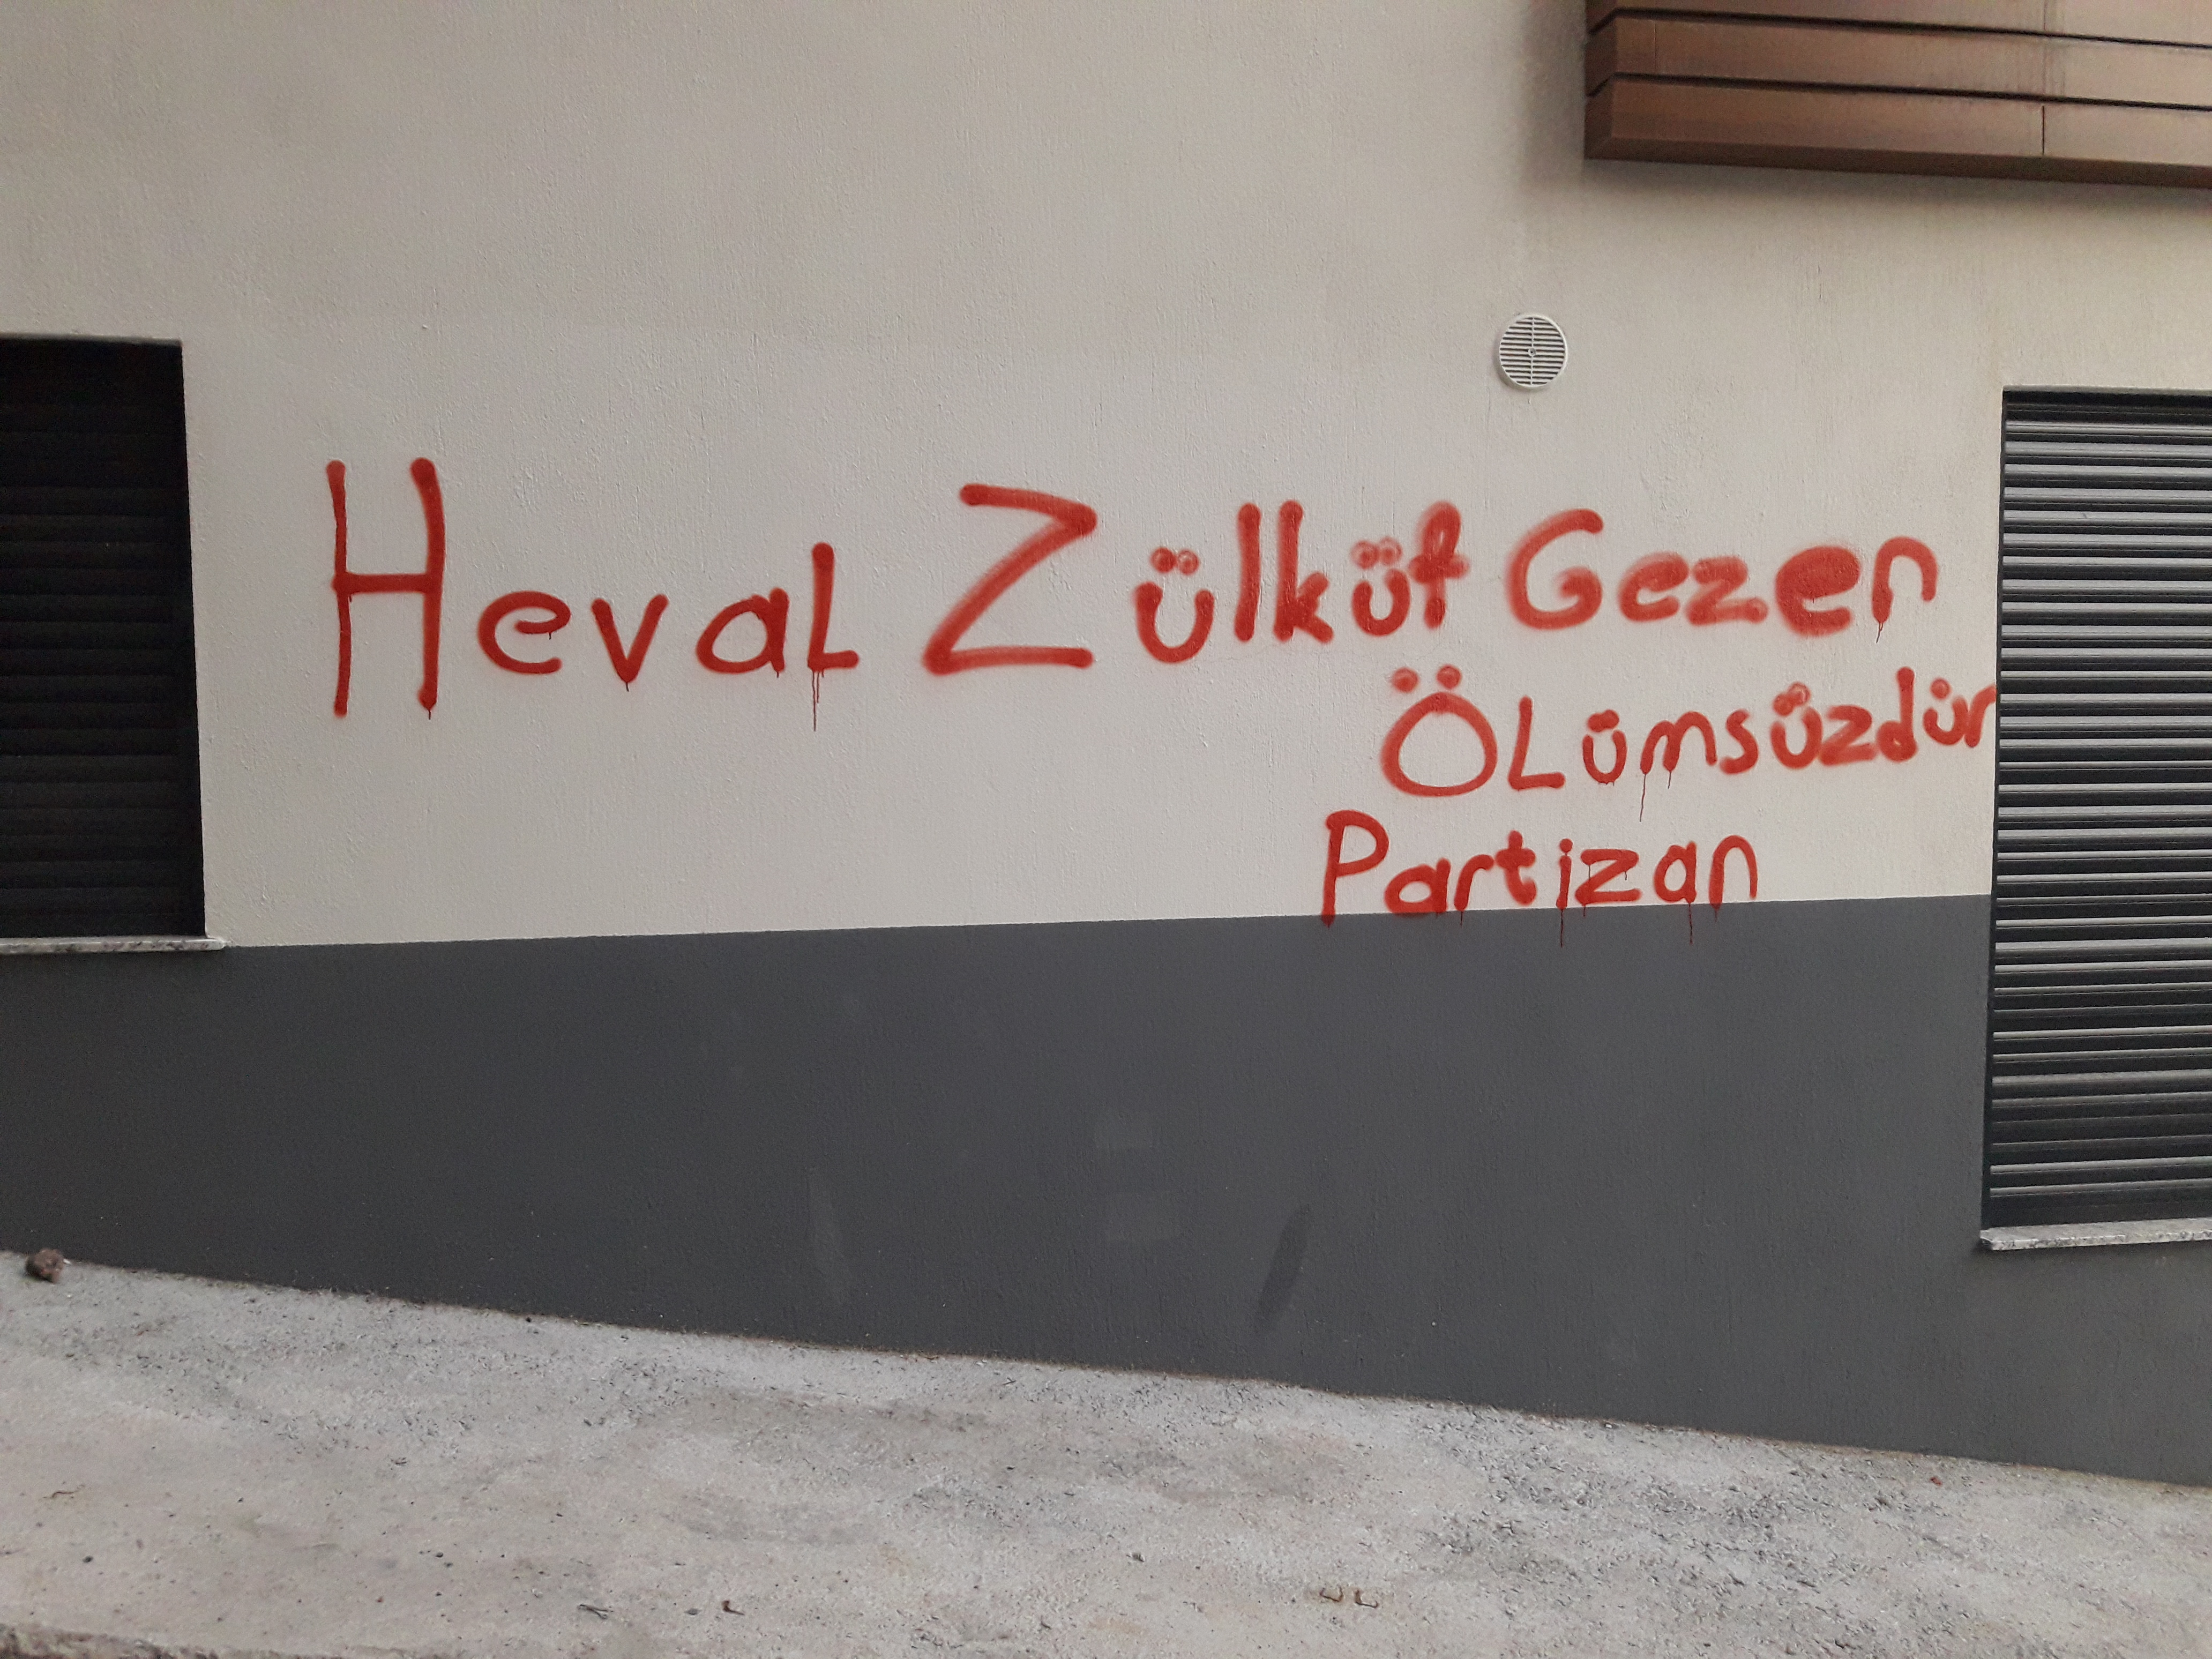 Heval Zülküf Gezen
Ölümsüzdür
Partizan